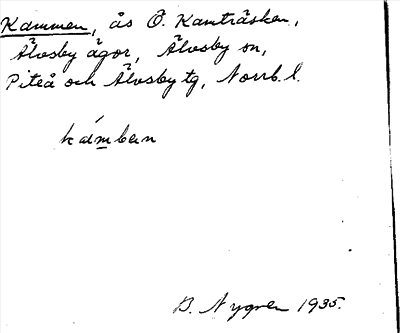 Kammen, ås Ö. Kanträsken,
Älvsby ägor, Älvsby sn,
Piteå och Älvsby tg, Norrb. l.
kámban
B. Nygren 1935.